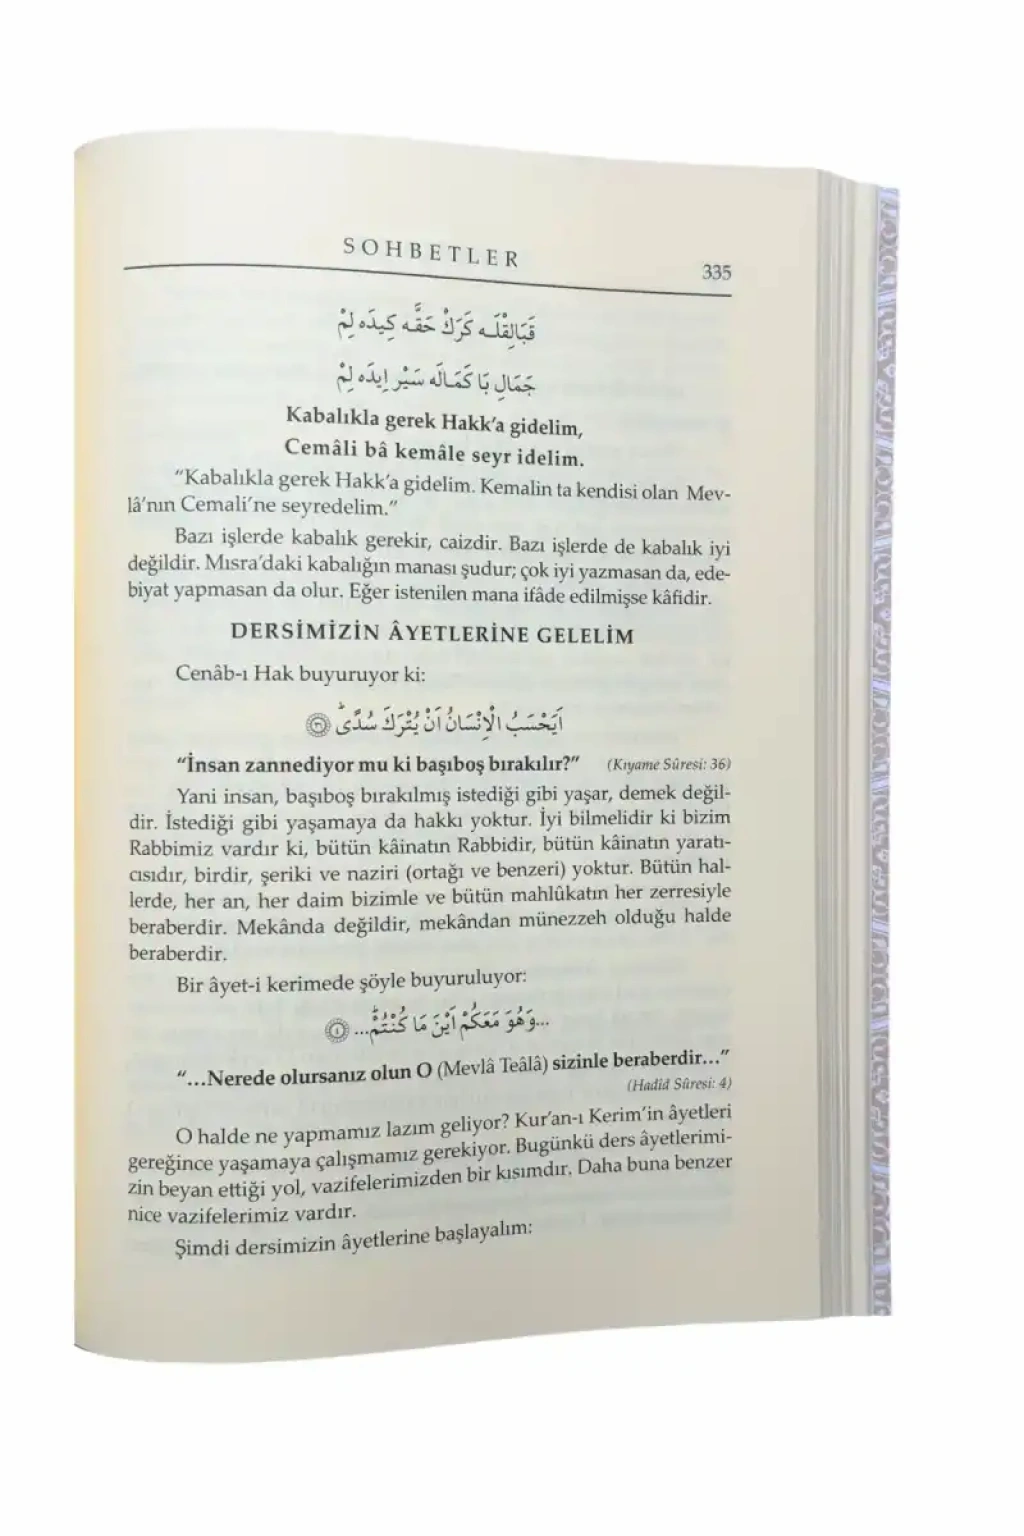 SOHBETLER
335
قَبَالِقْلَـه كَرَكْ حَقَّه كِيدَه لِمْ
جَمَالِ بَا كَمَالَه سَيْر اِيدَه لِمْ
Kabalıkla gerek Hakk’a gidelim,
Cemâli bâ kemâle seyr idelim.
“Kabalıkla gerek Hakk’a gidelim. Kemalin ta kendisi olan Mev-
lâ’nın Cemali’ne seyredelim.”
Bazı işlerde kabalık gerekir, caizdir. Bazı işlerde de kabalık iyi
değildir. Mısra’daki kabalığın manası şudur; çok iyi yazmasan da, ede-
biyat yapmasan da olur. Eğer istenilen mana ifâde edilmişse kâfidir.
DERSİMİZİN ÂYETLERİNE GELELİM
Cenâb-ı Hak buyuruyor ki:
اَيَحْسَبُ الْاِنْسَانُ اَنْ يُتْرَكَ سُدًىۜ ﴿٣٦﴾
“İnsan zannediyor mu ki başıboş bırakılır?” (Kıyame Sûresi: 36)
Yani insan, başıboş bırakılmış istediği gibi yaşar, demek değil-
dir. İstediği gibi yaşamaya da hakkı yoktur. İyi bilmelidir ki bizim
Rabbimiz vardır ki, bütün kâinatın Rabbidir, bütün kâinatın yaratı-
cısıdır, birdir, şeriki ve naziri (ortağı ve benzeri) yoktur. Bütün hal-
lerde, her an, her daim bizimle ve bütün mahlûkatın her zerresiyle
beraberdir. Mekânda değildir, mekândan münezzeh olduğu halde
beraberdir.
Bir âyet-i kerimede şöyle buyuruluyor:
...وَهُوَ مَعَكُمْ اَيْنَ مَا كُنْتُمْۜ... ﴿٤﴾
“...Nerede olursanız olun O (Mevlâ Teâlâ) sizinle beraberdir...”
(Hadîd Sûresi: 4)
O halde ne yapmamız lazım geliyor? Kur’an-ı Kerim’in âyetleri
gereğince yaşamaya çalışmamız gerekiyor. Bugünkü ders âyetlerimi-
zin beyan ettiği yol, vazifelerimizden bir kısımdır. Daha buna benzer
nice vazifelerimiz vardır.
Şimdi dersimizin âyetlerine başlayalım: